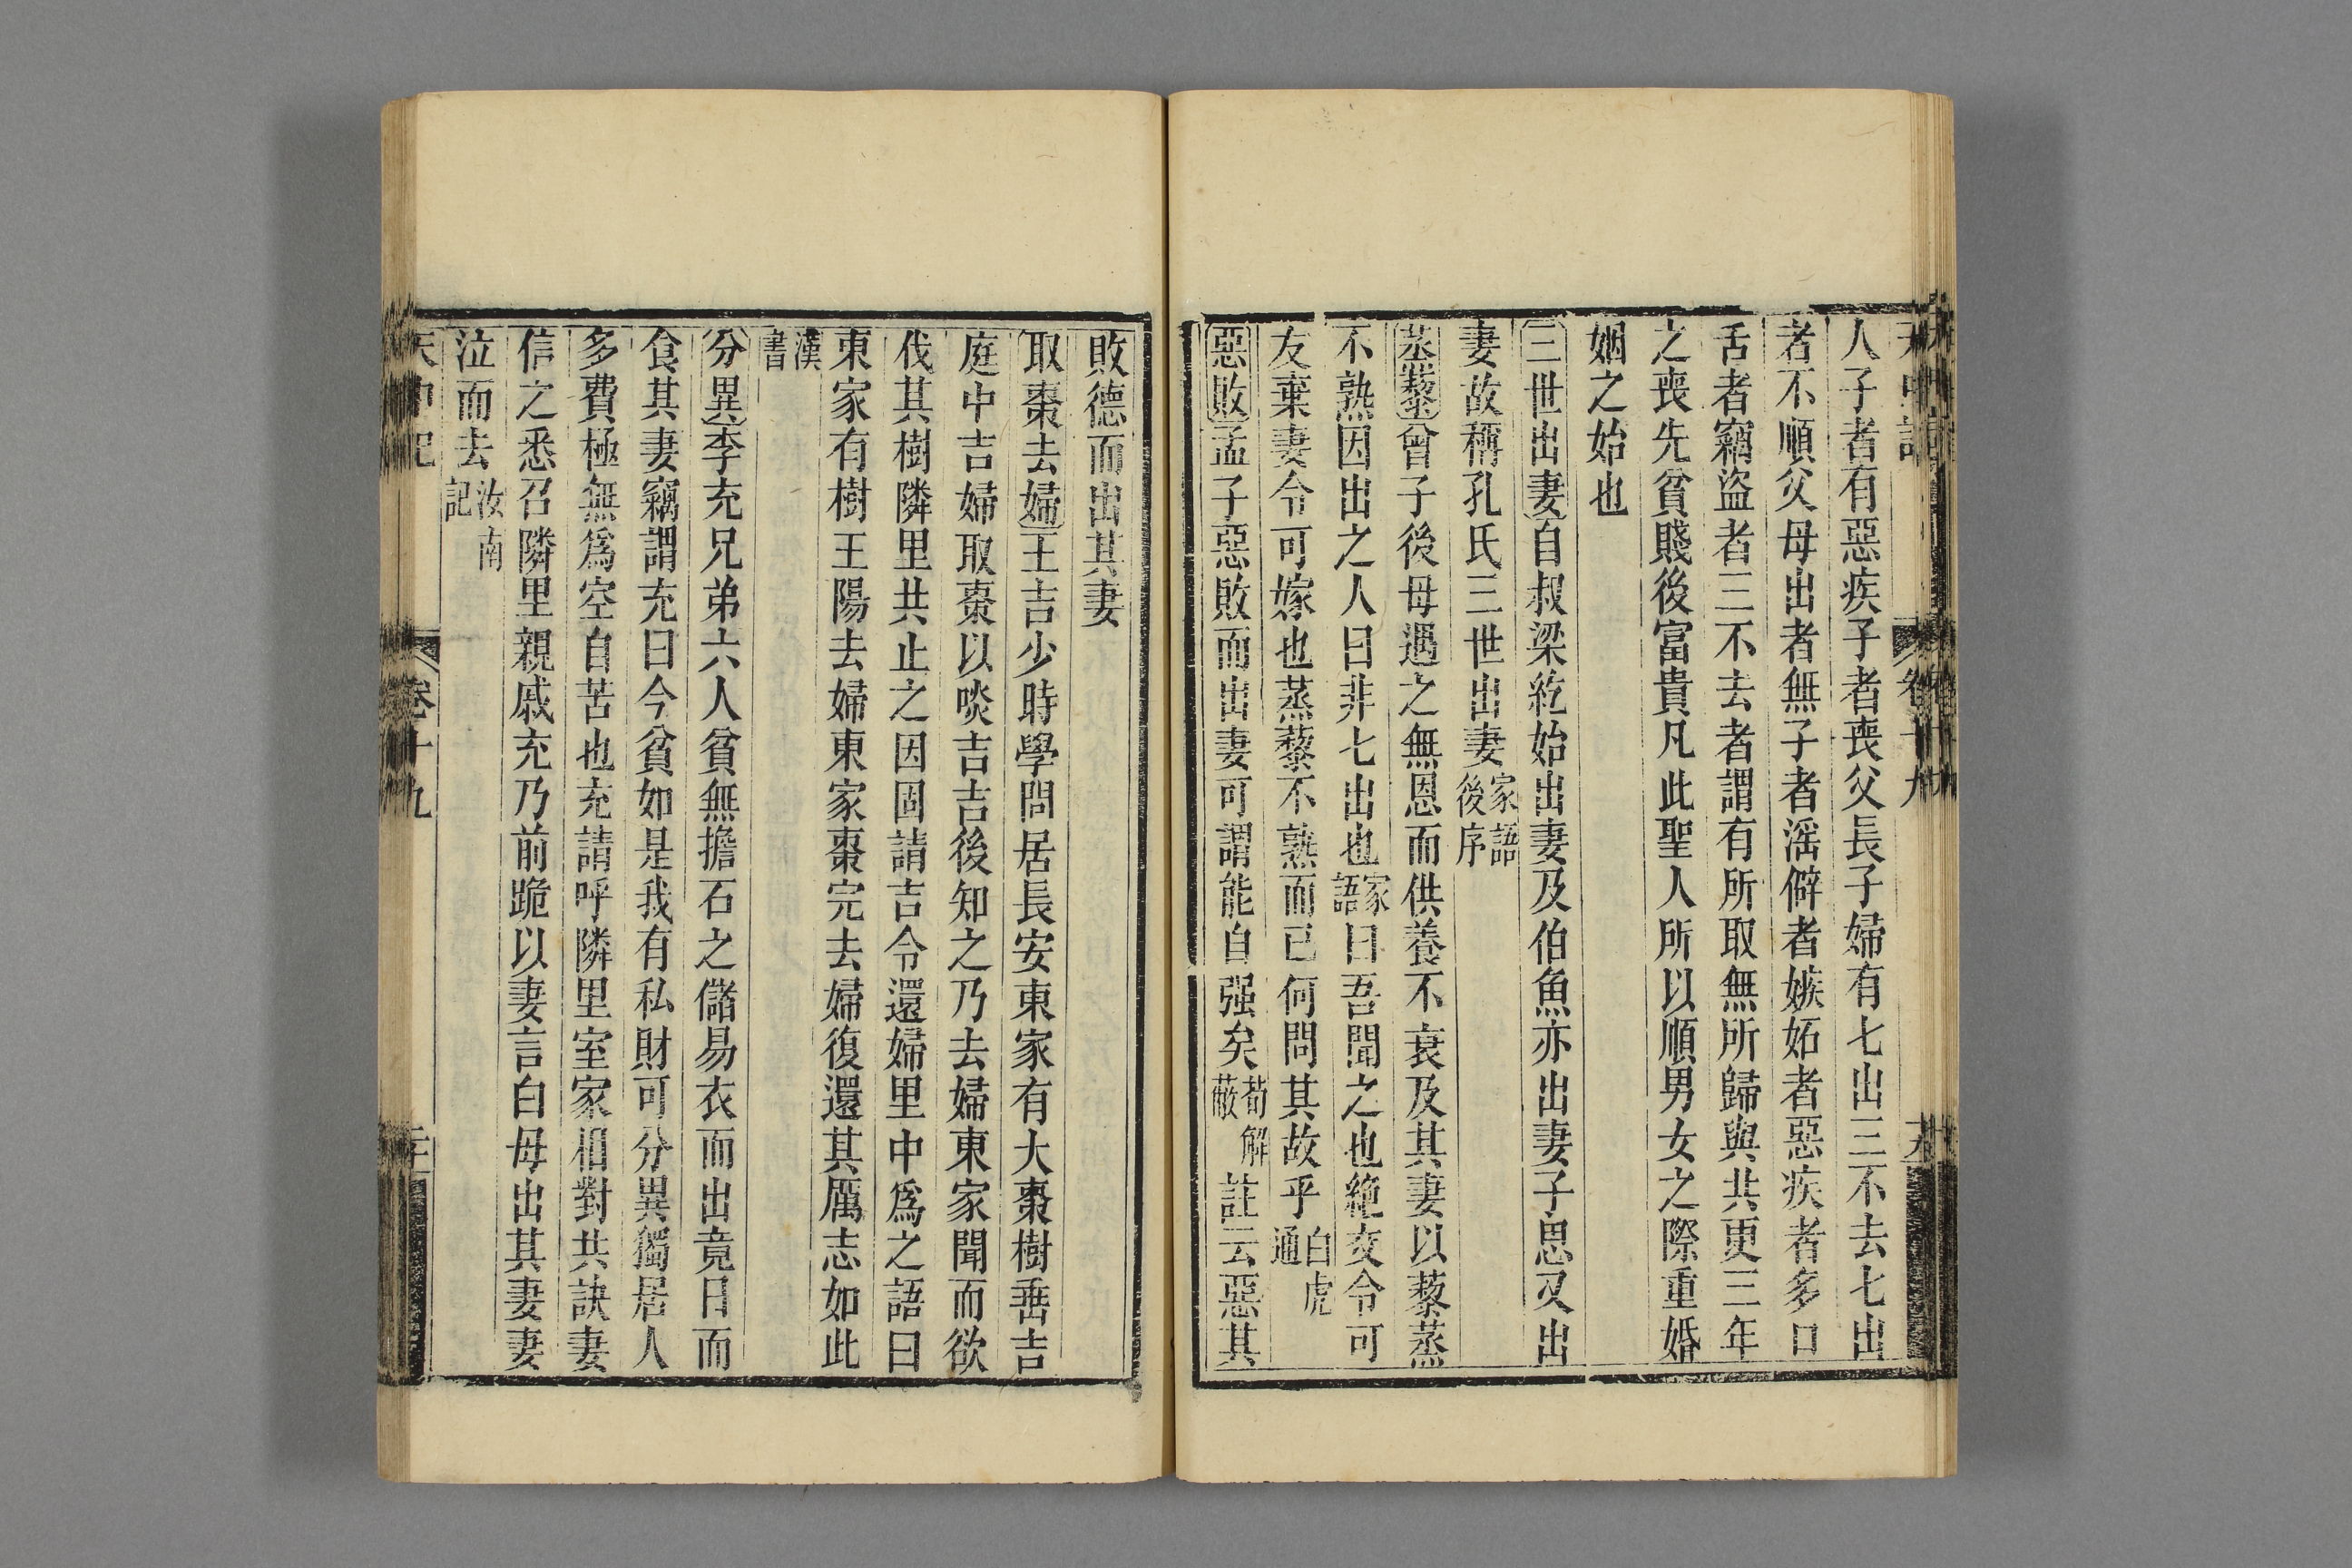 天中記 卷十九
人子者有惡疾子者喪父長子婦有七出三不去七出
者不順父母出者無子者滛僻者嫉妬者惡疾者多口
舌者竊盜者三不去者謂有所取無所歸與共更三年
之喪先貧賤後富貴凡此聖人所以順男女之際重婚
姻之始也
三世出妻自叔梁紇始出妻及伯魚亦出妻子思又出
妻故稱孔氏三世出妻家語後序
蒸藜曾子後母遇之無恩而供養不衰及其妻以藜蒸
不熟因出之人曰非七出也家語曰吾聞之也絶交令可
友棄妻令可嫁也蒸藜不熟而已何問其故乎白虎通
惡敗孟子惡敗而出妻可謂能自强矣荀解蔽註云惡其
敗德而出其妻
取棗去婦王吉少時學問居長安東家有大棗樹垂吉
庭中吉婦取棗以啖吉吉後知之乃去婦東家聞而欲
伐其樹隣里共止之因固請吉令還婦里中爲之語曰
東家有樹王陽去婦東家棗完去婦復還其厲志如此
漢書
分異李充兄弟六人貧無擔石之儲易衣而出竟日而
食其妻竊謂充曰今貧如是我有私財可分異獨居人
多費極無爲空自苦也充請呼隣里室家相對共訣妻
信之悉召隣里親戚充乃前跪以妻言白母出其妻妻
泣而去汝南記
天中記 卷十九